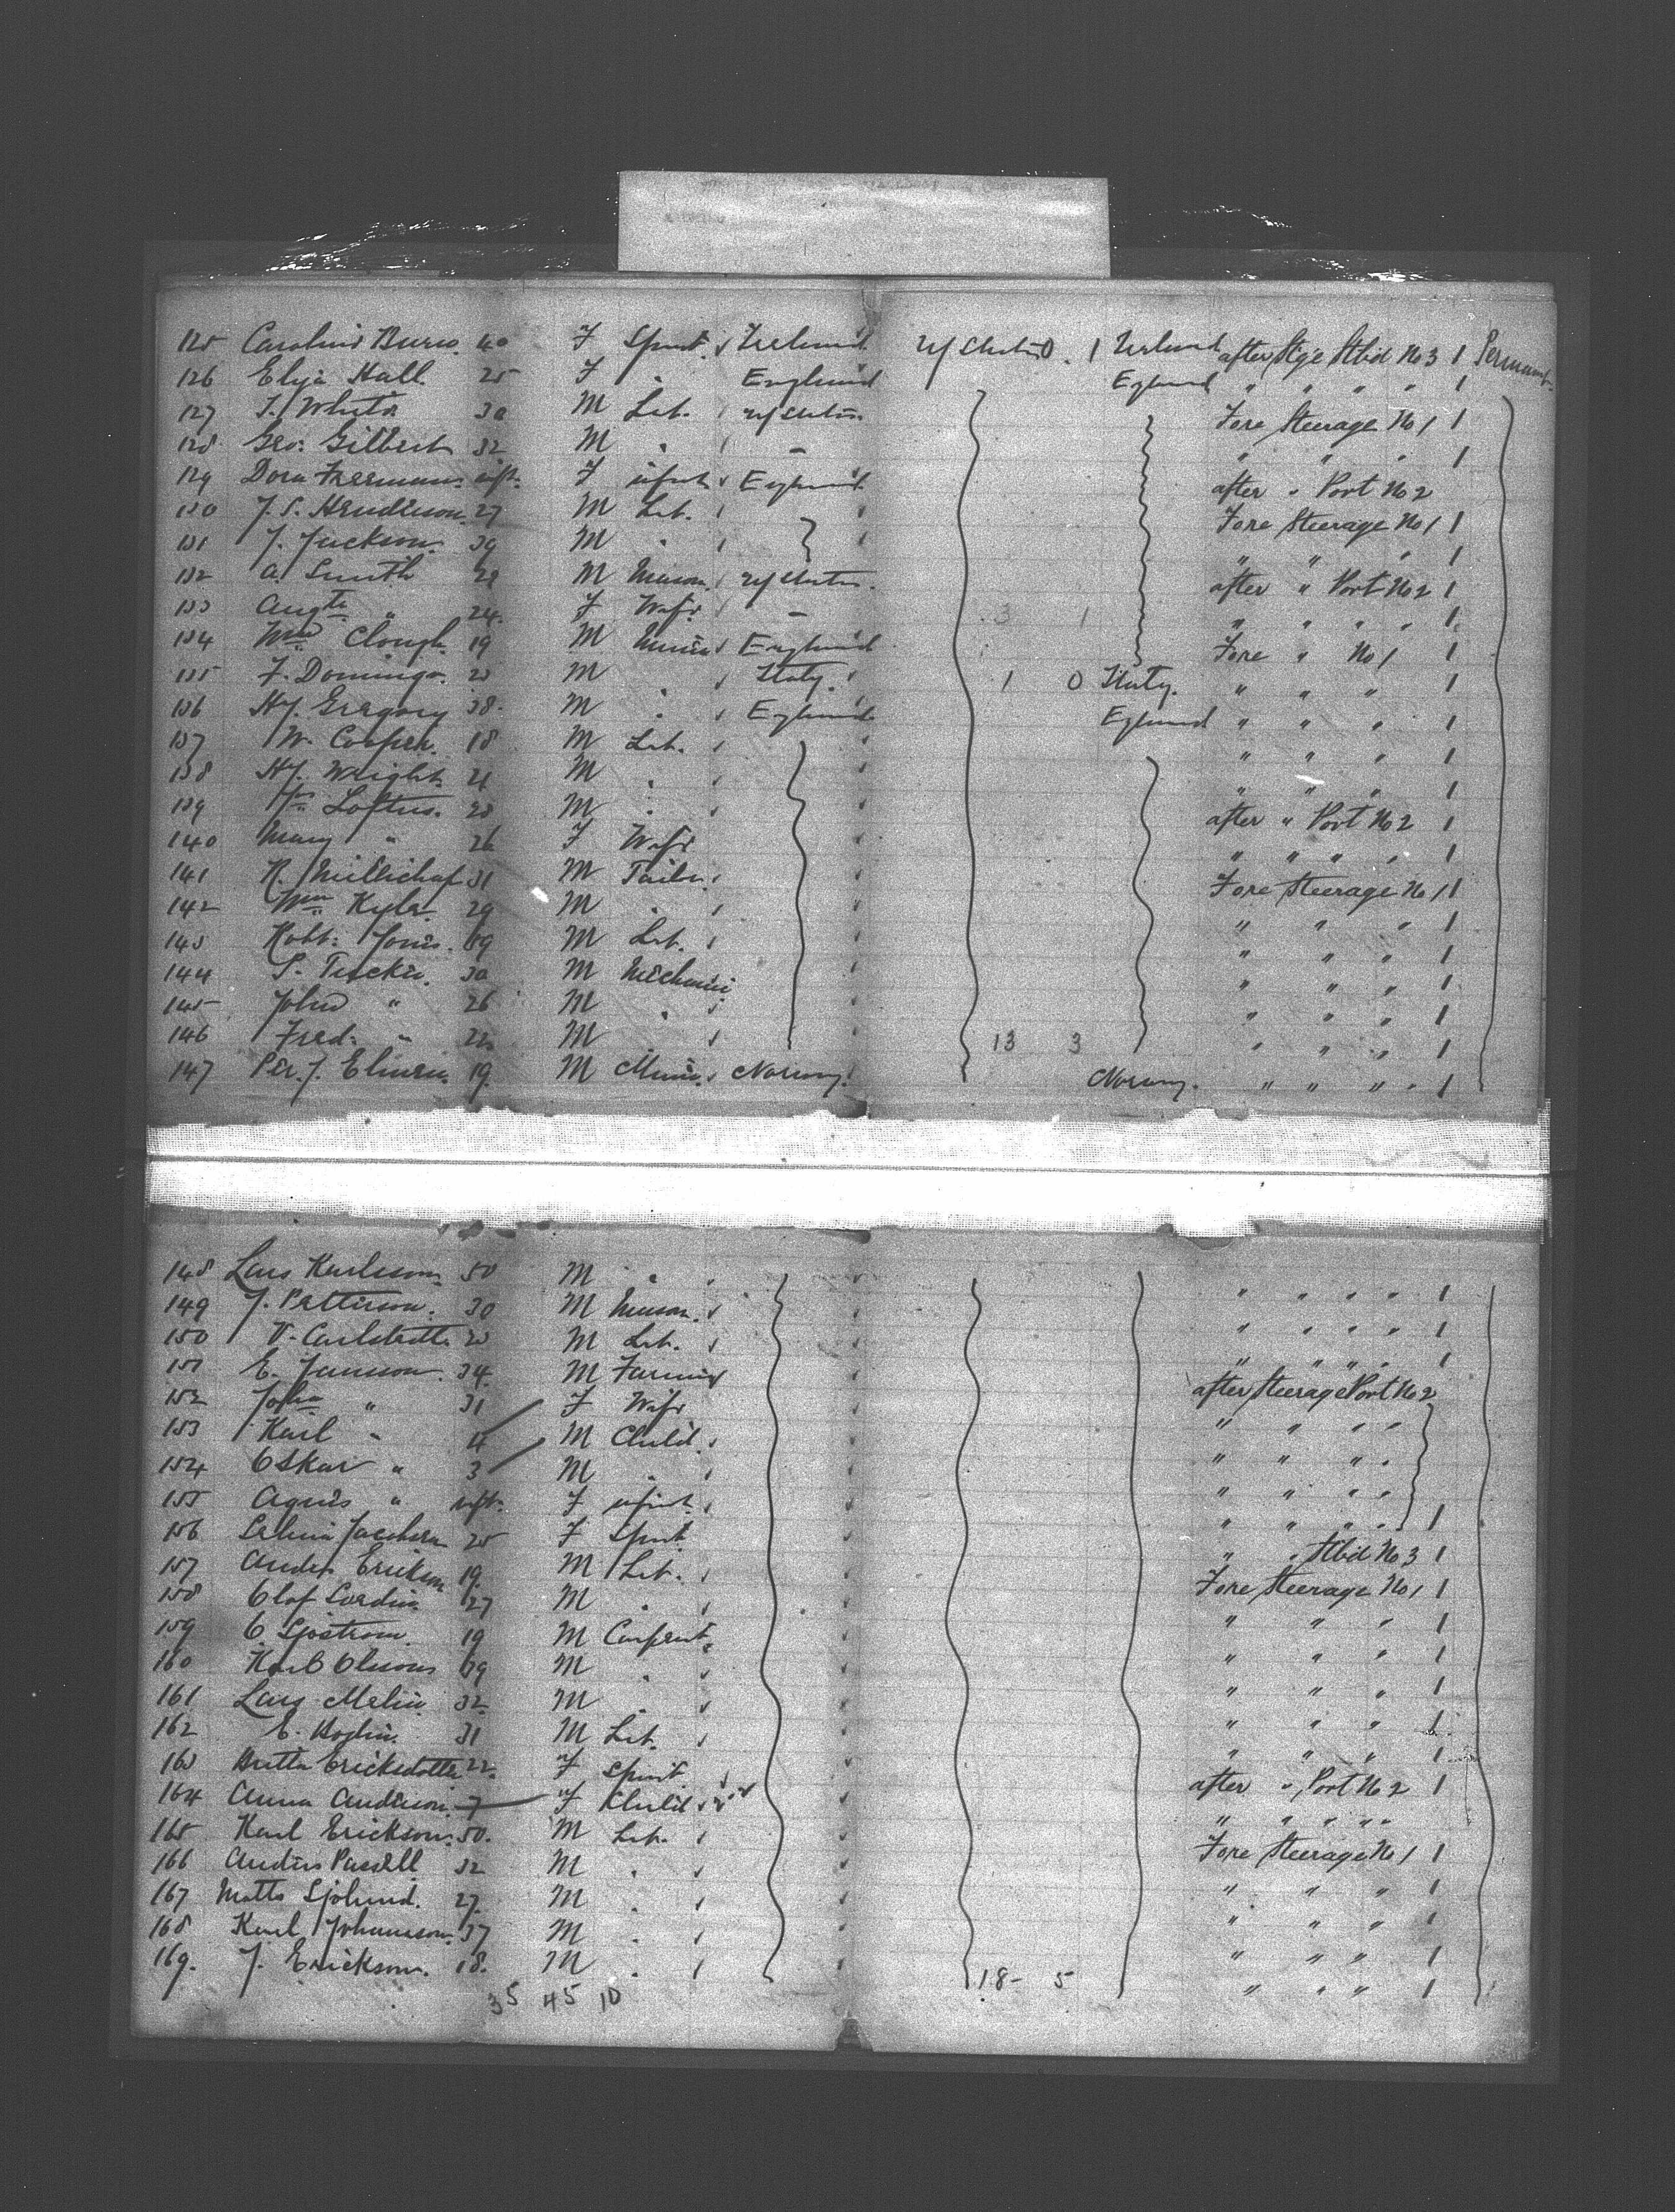 125 Caroline Burns 40 F Spinst. Ireland U/States 0 1 Ireland after Stge Stbd No 3 1 Permanent
126 Eliza Hall 25 F " England England " " " " 1
127 J. White 30 M Lab. U/States Fore Steerage No 1 1
128 Geo. Gilbert 32 M " " " " " 1
129 Dora Freeman inft. F infant England after " Port No 2
130 J. S. Henderson 27 M Lab. Fore Steerage No 1 1
131 J. Jackson 39 M " " " " 1
132 A. Smith 28 M Mason U/States after " Port No 2 1
133 Augta " 24 F Wife " 3 1 " " " " 1
134 Wm Clough 19 M Miner England Fore " No 1 1
135 F. Domingo 25 M " Italy 1 0 Italy " " " 1
136 Hy. Gregory 38 M " England England " " " 1
137 W. Cooper 18 M Lab. " " " 1
138 Hy. Wright 21 M " " " " 1
139 Js Loftus 28 M " after " Port No 2 1
140 Mary " 26 F Wife " " " " 1
141 R. Millichap 31 M Tailor Fore Steerage No 1 1
142 Wm Kyle 29 M " " " " 1
143 Robt. Jones 19 M Lab. " " " 1
144 S. Tucker 30 M Mechanic " " " 1
145 John " 26 M " " " " 1
146 Fred. " 22 M " 13 3 " " " 1
147 Per. J. 19 M Miner Norway Norway " " " " 1
148 Lars Karlsson 50 M " " " " " 1
149 J. Petterson 30 M Mason " " " " 1
150 V. Carlstedt 25 M Lab. " " " " 1
151 E. Jansson 34 M Farmer after Steerage Port No 2
152 Joha " 31 F Wife " " " "
153 Karl " 4 M Child " " " "
154 Oskar " 3 M " " " " "
155 Agnes " inft. F infant " " " " 1
156 25 F Spinst " " Stbd No 3 1
157 Anders Erickson 19 M Lab. Fore Steerage No 1 1
158 Olof 27 M " " " " 1
159 O Sjostrom 19 M Carpent. " " " 1
160 Karl Olsson 19 M " " " " 1
161 Lars Malin 32 M " " " " 1
162 E. Hoglin 31 M Lab. " " " 1
163 Britta Ericksdotter 22 F Spinst after " Port No 2 1
164 Anna Anderson 7 F Child " " " " "
165 Karl Erickson 50 M Lab. Fore Steerage No 1 1
166 Anders 32 M " " " " 1
167 Matts Sjolund 27 M " " " " 1
168 Karl Johansson 37 M " " " " 1
169. J. Erickson 18 M " 18- 5 " " " 1
35 45 10